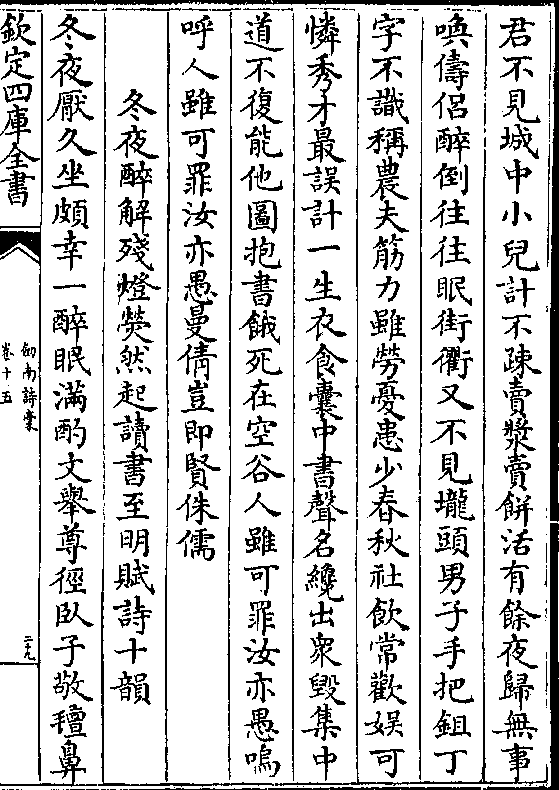 君不見城中小兒計不疎賣漿賣餅活有餘夜歸無事
喚儔侶醉倒往往眠街衢又不見壠頭男子手把鉏丁
字不識稱農夫筋力雖勞憂患少春秋社飲常歡娯可
憐秀才最誤計一生衣食囊中書聲名纔出衆毀集中
道不復能他圖抱書餓死在空谷人雖可罪汝亦愚嗚
呼人雖可罪汝亦愚曼倩豈即賢侏儒
冬夜醉解殘燈熒然起讀書至明賦詩十韻
冬夜厭久坐頗幸一醉眠滿酌文舉尊徑臥子敬氊鼻
欽定四庫全書
劒南詩稾
卷十五
二九